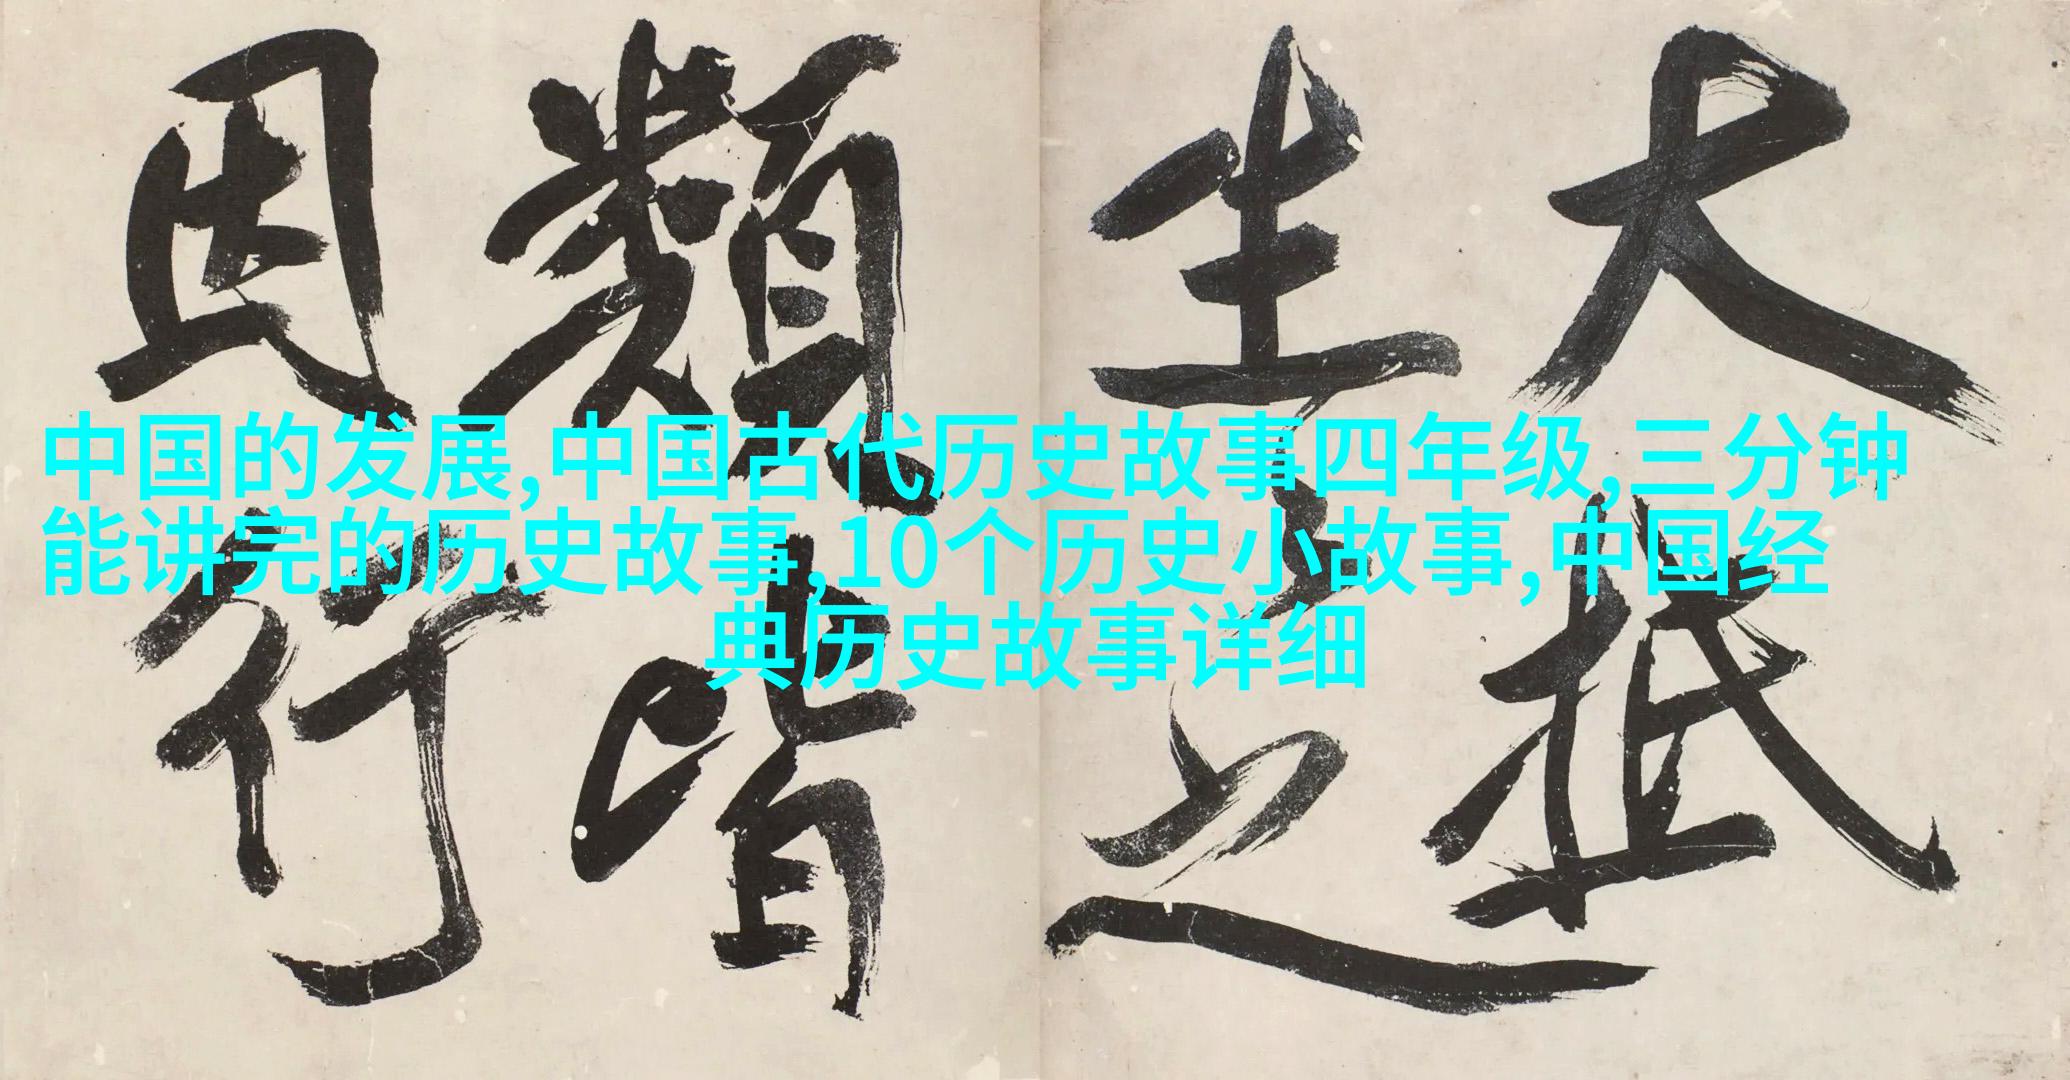 中国的发展,中国古代历史故事四年级,三分钟
能讲完的历史故事,10个历史小故事,中国经
典历史故事详细
大抵
生之
類皆
因行